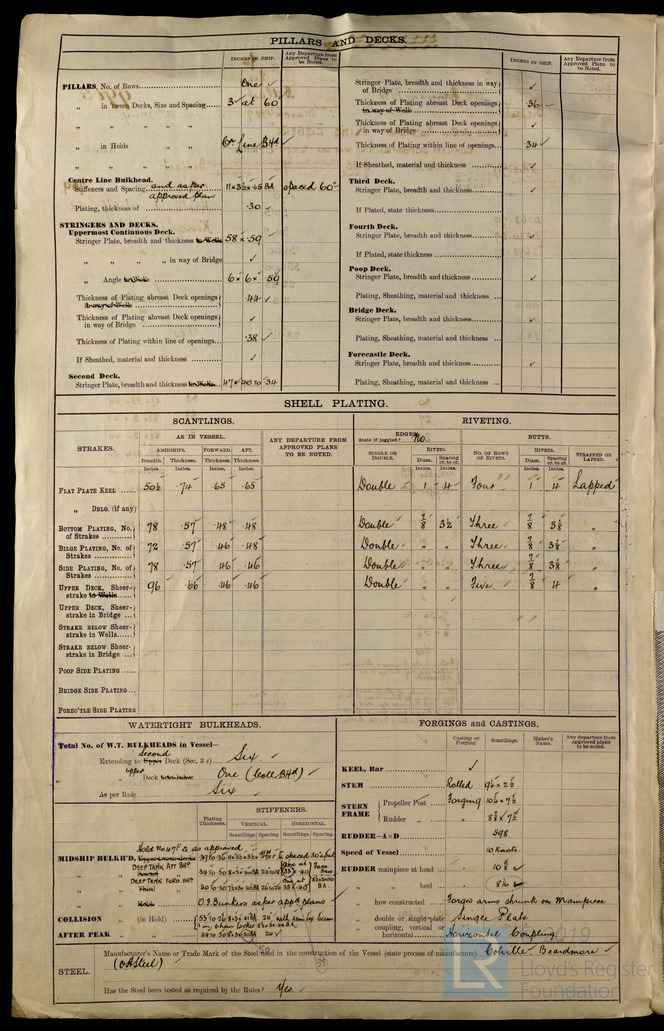 PILLARS AND DECKS.
INCHES IN SHIP.
Any Departure from Approved Plans to be Noted.
PILLARS, No. of Rows One
„ in 'tween Decks, Size and Spacing 3 at 60
„ „ „ „
„ in Holds Line BHd
„ „ „
Centre Line Bulkhead.
Stiffeners and Spacing and as per approved plan spaced 60"
Plating, thickness of .30
STRINGERS AND DECKS.
Uppermost Continuous Deck.
Stringer Plate, breadth and thickness in Wells 58 × .59
„ „ „ „ in way of Bridge ✓
„ Angle in Wells 6 × 6 × .59
Thickness of Plating abreast Deck openings in way of Wells .44 ✓
Thickness of Plating abreast Deck openings in way of Bridge ✓
Thickness of Plating within line of openings .38 ✓
If Sheathed, material and thickness ✓
Second Deck.
Stringer Plate, breadth and thickness in Wells 47 × .40 to .34
INCHES IN SHIP.
Any Departure from Approved Plans to be Noted.
Stringer Plate, breadth and thickness in way of Bridge ✓
Thickness of Plating abreast Deck openings in way of Wells .36
Thickness of Plating abreast Deck openings in way of Bridge ✓
Thickness of Plating within line of openings .34 ✓
If Sheathed, material and thickness ✓
Third Deck.
Stringer Plate, breadth and thickness ✓
If Plated, state thickness
Fourth Deck.
Stringer Plate, breadth and thickness ✓
If Plated, state thickness
Poop Deck.
Stringer Plate, breadth and thickness ✓
Plating, Sheathing, material and thickness
Bridge Deck.
Stringer Plate, breadth and thickness ✓
Plating, Sheathing, material and thickness
Forecastle Deck.
Stringer Plate, breadth and thickness ✓
Plating, Sheathing, material and thickness
SHELL PLATING.
SCANTLINGS.
RIVETING.
STRAKES.
AS IN VESSEL.
AMIDSHIPS. FORWARD. AFT.
Breadth. Thickness. Thickness. Thickness.
Inches. Inches. Inches.
ANY DEPARTURE FROM APPROVED PLANS TO BE NOTED.
EDGES
State if joggled? No.
SINGLE OR DOUBLE.
RIVETS.
Diam. Spacing cr. to cr.
Inches. Inches.
BUTTS.
NO. OF ROWS OF RIVETS.
RIVETS.
Diam. Spacing cr. to cr.
Inches. Inches.
STRAPPED OR LAPPED.
FLAT PLATE KEEL 50½ .74 .65 .65 Double 1 4 Four 1 4 Lapped
„ DBLG. (if any)
BOTTOM PLATING, No. of Strakes 78 .57 .48 .48 Double 7/8 3½ Three 7/8 „
BILGE PLATING, No. of Strakes 72 .57 .46 .48 Double „ „ Three 7/8 „
SIDE PLATING, No. of Strakes 78 .57 .46 .46 Double „ „ Three 7/8 „
UPPER DECK, Sheerstrake in Wells 96 .66 .46 .46 Double „ „ Five 7/8 4 „
UPPER DECK, Sheerstrake in Bridge
STRAKE BELOW Sheerstrake in Wells
STRAKE BELOW Sheerstrake in Bridge
POOP SIDE PLATING
BRIDGE SIDE PLATING
FOREC'TLE SIDE PLATING
WATERTIGHT BULKHEADS.
Total No. of W.T. BULKHEADS in Vessel—
Extending to Upper Second Deck (Sec. 3 c) Six.
„ Upper Deck One (Coll BHd)
As per Rule Six
Plating Thickness.
STIFFENERS.
VERTICAL. HORIZONTAL.
Scantlings. Spacing. Scantlings. Spacing.
MIDSHIP BULKH'D, as approved
„ DEEP TANK AFT BHD
„ DEEP TANK FORD BHD
„ Holds O.F. Bunkers as per appd plans
COLLISION „ (in Hold)
AFTER PEAK „
FORGINGS and CASTINGS.
Casting or Forging. Scantlings. Maker's Name. Any departure from approved plans to be noted.
KEEL, Bar ✓
STEM Rolled 9½ × 2½
STERN FRAME
Propeller Post Forging
Rudder „
RUDDER—A×D 598
Speed of Vessel 10 Knots
RUDDER mainpiece at head
„ „ heel
„ how constructed Forged arms shrunk on Mainpiece
„ double or single plate Single Plate
„ coupling, vertical or horizontal Horizontal Coupling
STEEL.
Manufacturer's Name or Trade Mark of the Steel used in the construction of the Vessel (state process of manufacture) Colville Beardmore
(O.H. Steel)
Has the Steel been tested as required by the Rules? Yes.
2019
LR
Lloyd's Register
Foundation